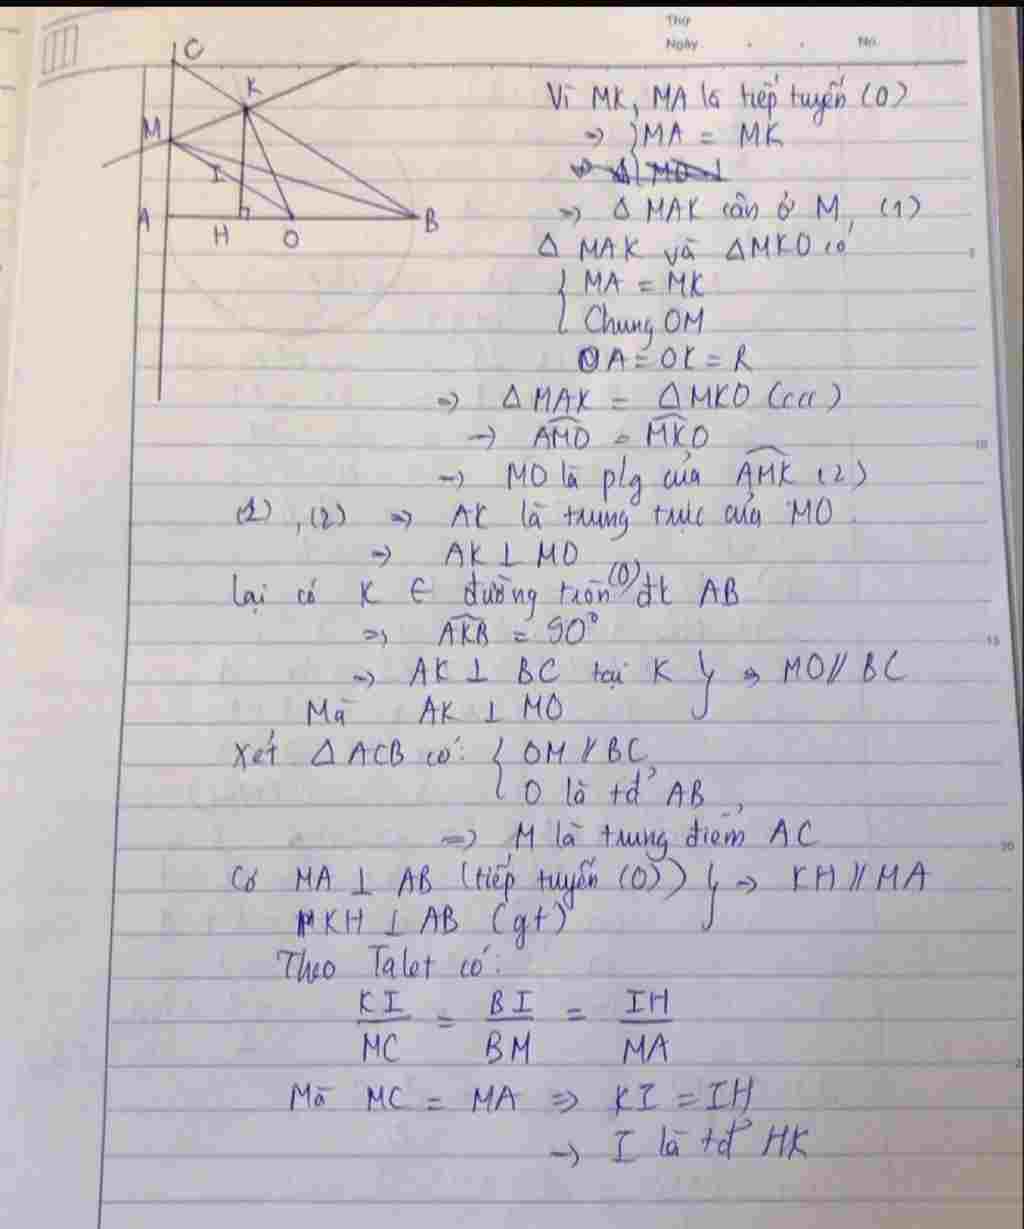 Thứ
Ngày . . No.
C
K
M
I
A
H
O
B
Vì MK, MA là tiếp tuyến (O)
=> } MA = MK
=> Δ MAK cân ở M, (1)
Δ MAK và ΔMKO có
{ MA = MK
{ Chung OM
OA = OK = R
=> Δ MAK = Δ MKO (ccc)
-> \widehat{AMO} = \widehat{MKO}
-> MO là p/g của \widehat{AMK} (2)
(1), (2) => AK là trung trực của MO
=> AK ⊥ MO
Lại có K ∈ đường tròn (O) đk AB
=> \widehat{AKB} = 90°
-> AK ⊥ BC tại K } => MO // BC
Mà AK ⊥ MO
Xét Δ ACB có: { OM // BC,
{ O là tđ' AB,
=> M là trung điểm AC
Có MA ⊥ AB (tiếp tuyến (O)) } => KH // MA
KH ⊥ AB (gt)
Theo Talet có:
KI/MC = BI/BM = IH/MA
Mà MC = MA => KI = IH
-> I là tđ' HK
10
15
20